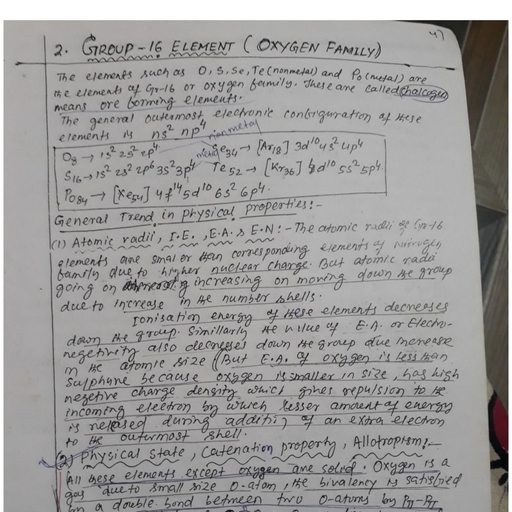 47
2. GROUP-16 ELEMENT (OXYGEN FAMILY)
The elements such as O, S, Se, Te (nonmetal) and Po (metal) are
the elements of Gr-16 or oxygen family. These are called chalcogen
means ore forming elements.
The general outermost electronic configuration of these
elements is ns² np⁴
nonmetal
O₈ → 1s² 2s² 2p⁴ Se₃₄ → [Ar₁₈] 3d¹⁰ 4s² 4p⁴
metal
S₁₆ → 1s² 2s² 2p⁶ 3s² 3p⁴ Te₅₂ → [Kr₃₆] 4d¹⁰ 5s² 5p⁴
Po₈₄ → [Xe₅₄] 4f¹⁴ 5d¹⁰ 6s² 6p⁴
General Trend in physical properties:-
(1) Atomic radii, I.E., E.A. & E.N:- The atomic radii of Gr-16
elements are smaller than corresponding elements of nitrogen
family due to higher nuclear charge. But atomic radii
going on increasing on moving down the group
due to increase in the number shells.
Ionisation energy of these elements decreases
down the group. Simillarly the value of E.A. or Electro-
negetivity also decreases down the group due increase
in the atomic size (But E.A. of oxygen is less than
Sulphure because oxygen is smaller in size, has high
negetive charge density which gives repulsion to the
incoming electron by which lesser amount of energy
is released during addition of an extra electron
to the outermost shell.
(2) Physical state, Catenation property, Allotropism:-
All these elements except oxygen are solid. Oxygen is a
gas due to small size O-atom, the bivalency is satisfied
by a double bond between two O-atoms by Pπ-Pπ